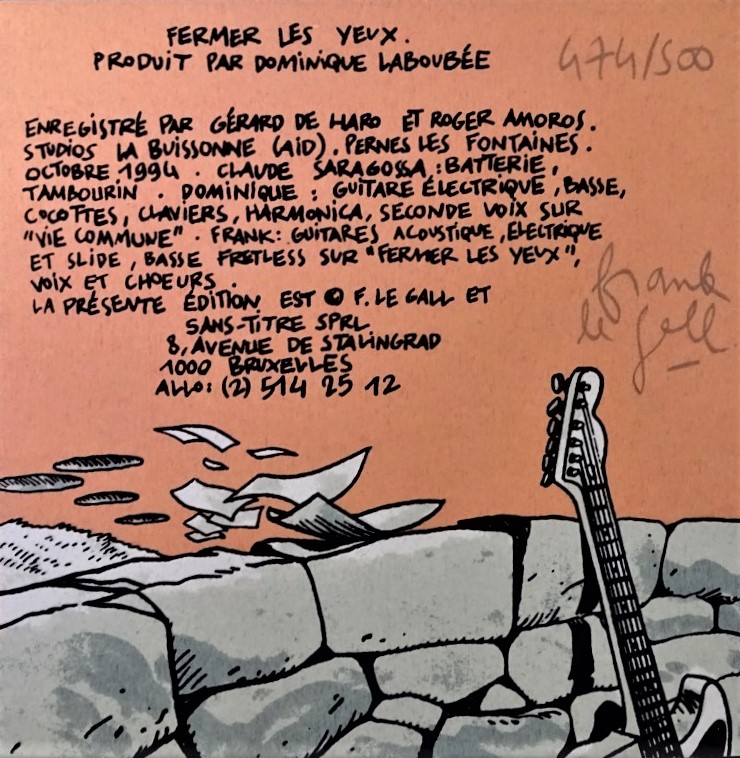 FERMER LES YEUX.
PRODUIT PAR DOMINIQUE LABOUBÉE
474/500
ENREGISTRÉ PAR GÉRARD DE HARO ET ROGER AMOROS.
STUDIOS LA BUISSONNE (AID). PERNES LES FONTAINES.
OCTOBRE 1994. CLAUDE SARAGOSSA : BATTERIE,
TAMBOURIN. DOMINIQUE : GUITARE ÉLECTRIQUE, BASSE,
COCOTTES, CLAVIERS, HARMONICA, SECONDE VOIX SUR
"VIE COMMUNE". FRANK: GUITARES ACOUSTIQUE, ELECTRIQUE
ET SLIDE, BASSE FRETLESS SUR "FERMER LES YEUX",
VOIX ET CHOEURS.
LA PRÉSENTE ÉDITION EST © F. LE GALL ET
SANS-TITRE SPRL
8, AVENUE DE STALINGRAD
1000 BRUXELLES
ALLO: (2) 514 25 12
frank
le gall